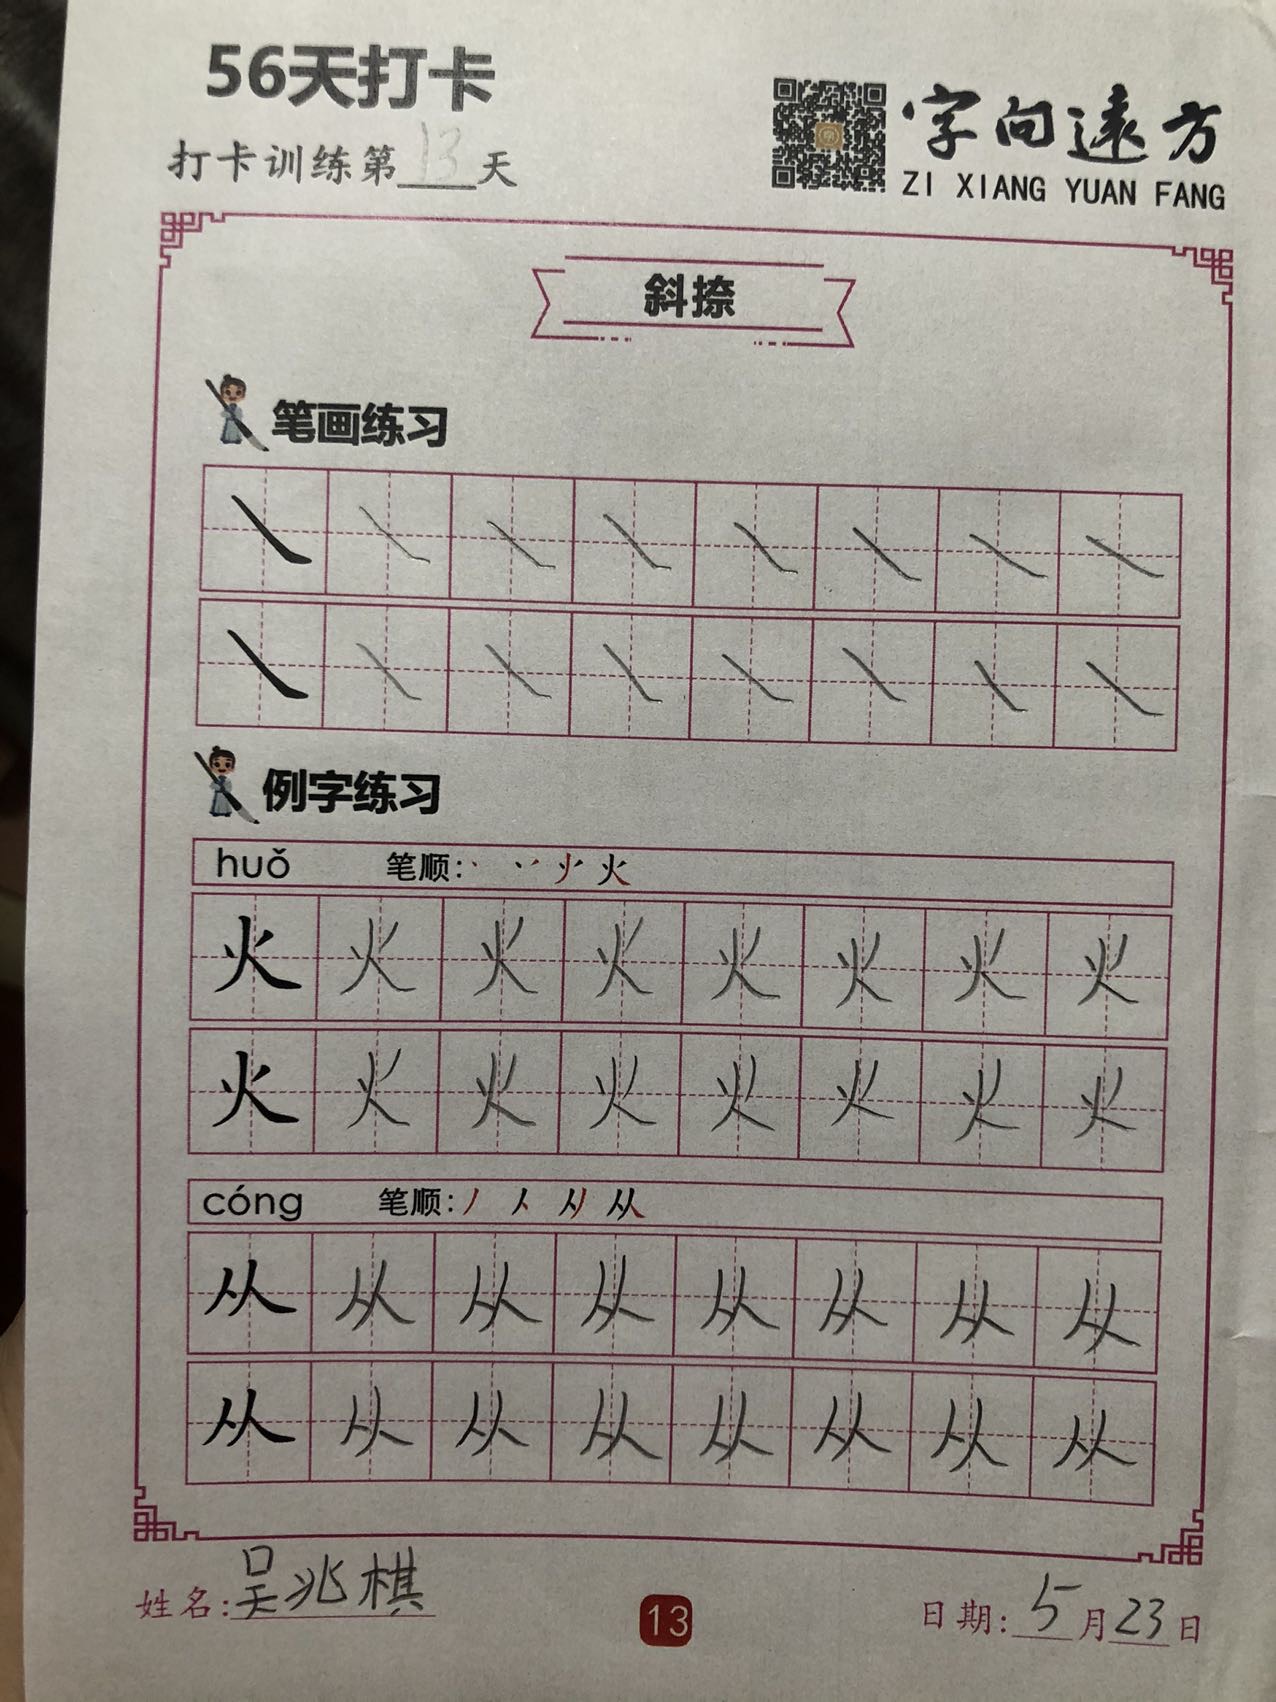 56天打卡
打卡训练第13天
字向遠方
ZI XIANG YUAN FANG
斜捺
笔画练习
例字练习
huǒ 笔顺: 火
火 火 火 火 火 火 火 火
火 火 火 火 火 火 火 火
cóng 笔顺: 从
从 从 从 从 从 从 从 从
从 从 从 从 从 从 从 从
姓名:吴兆棋 13 日期:5月23日